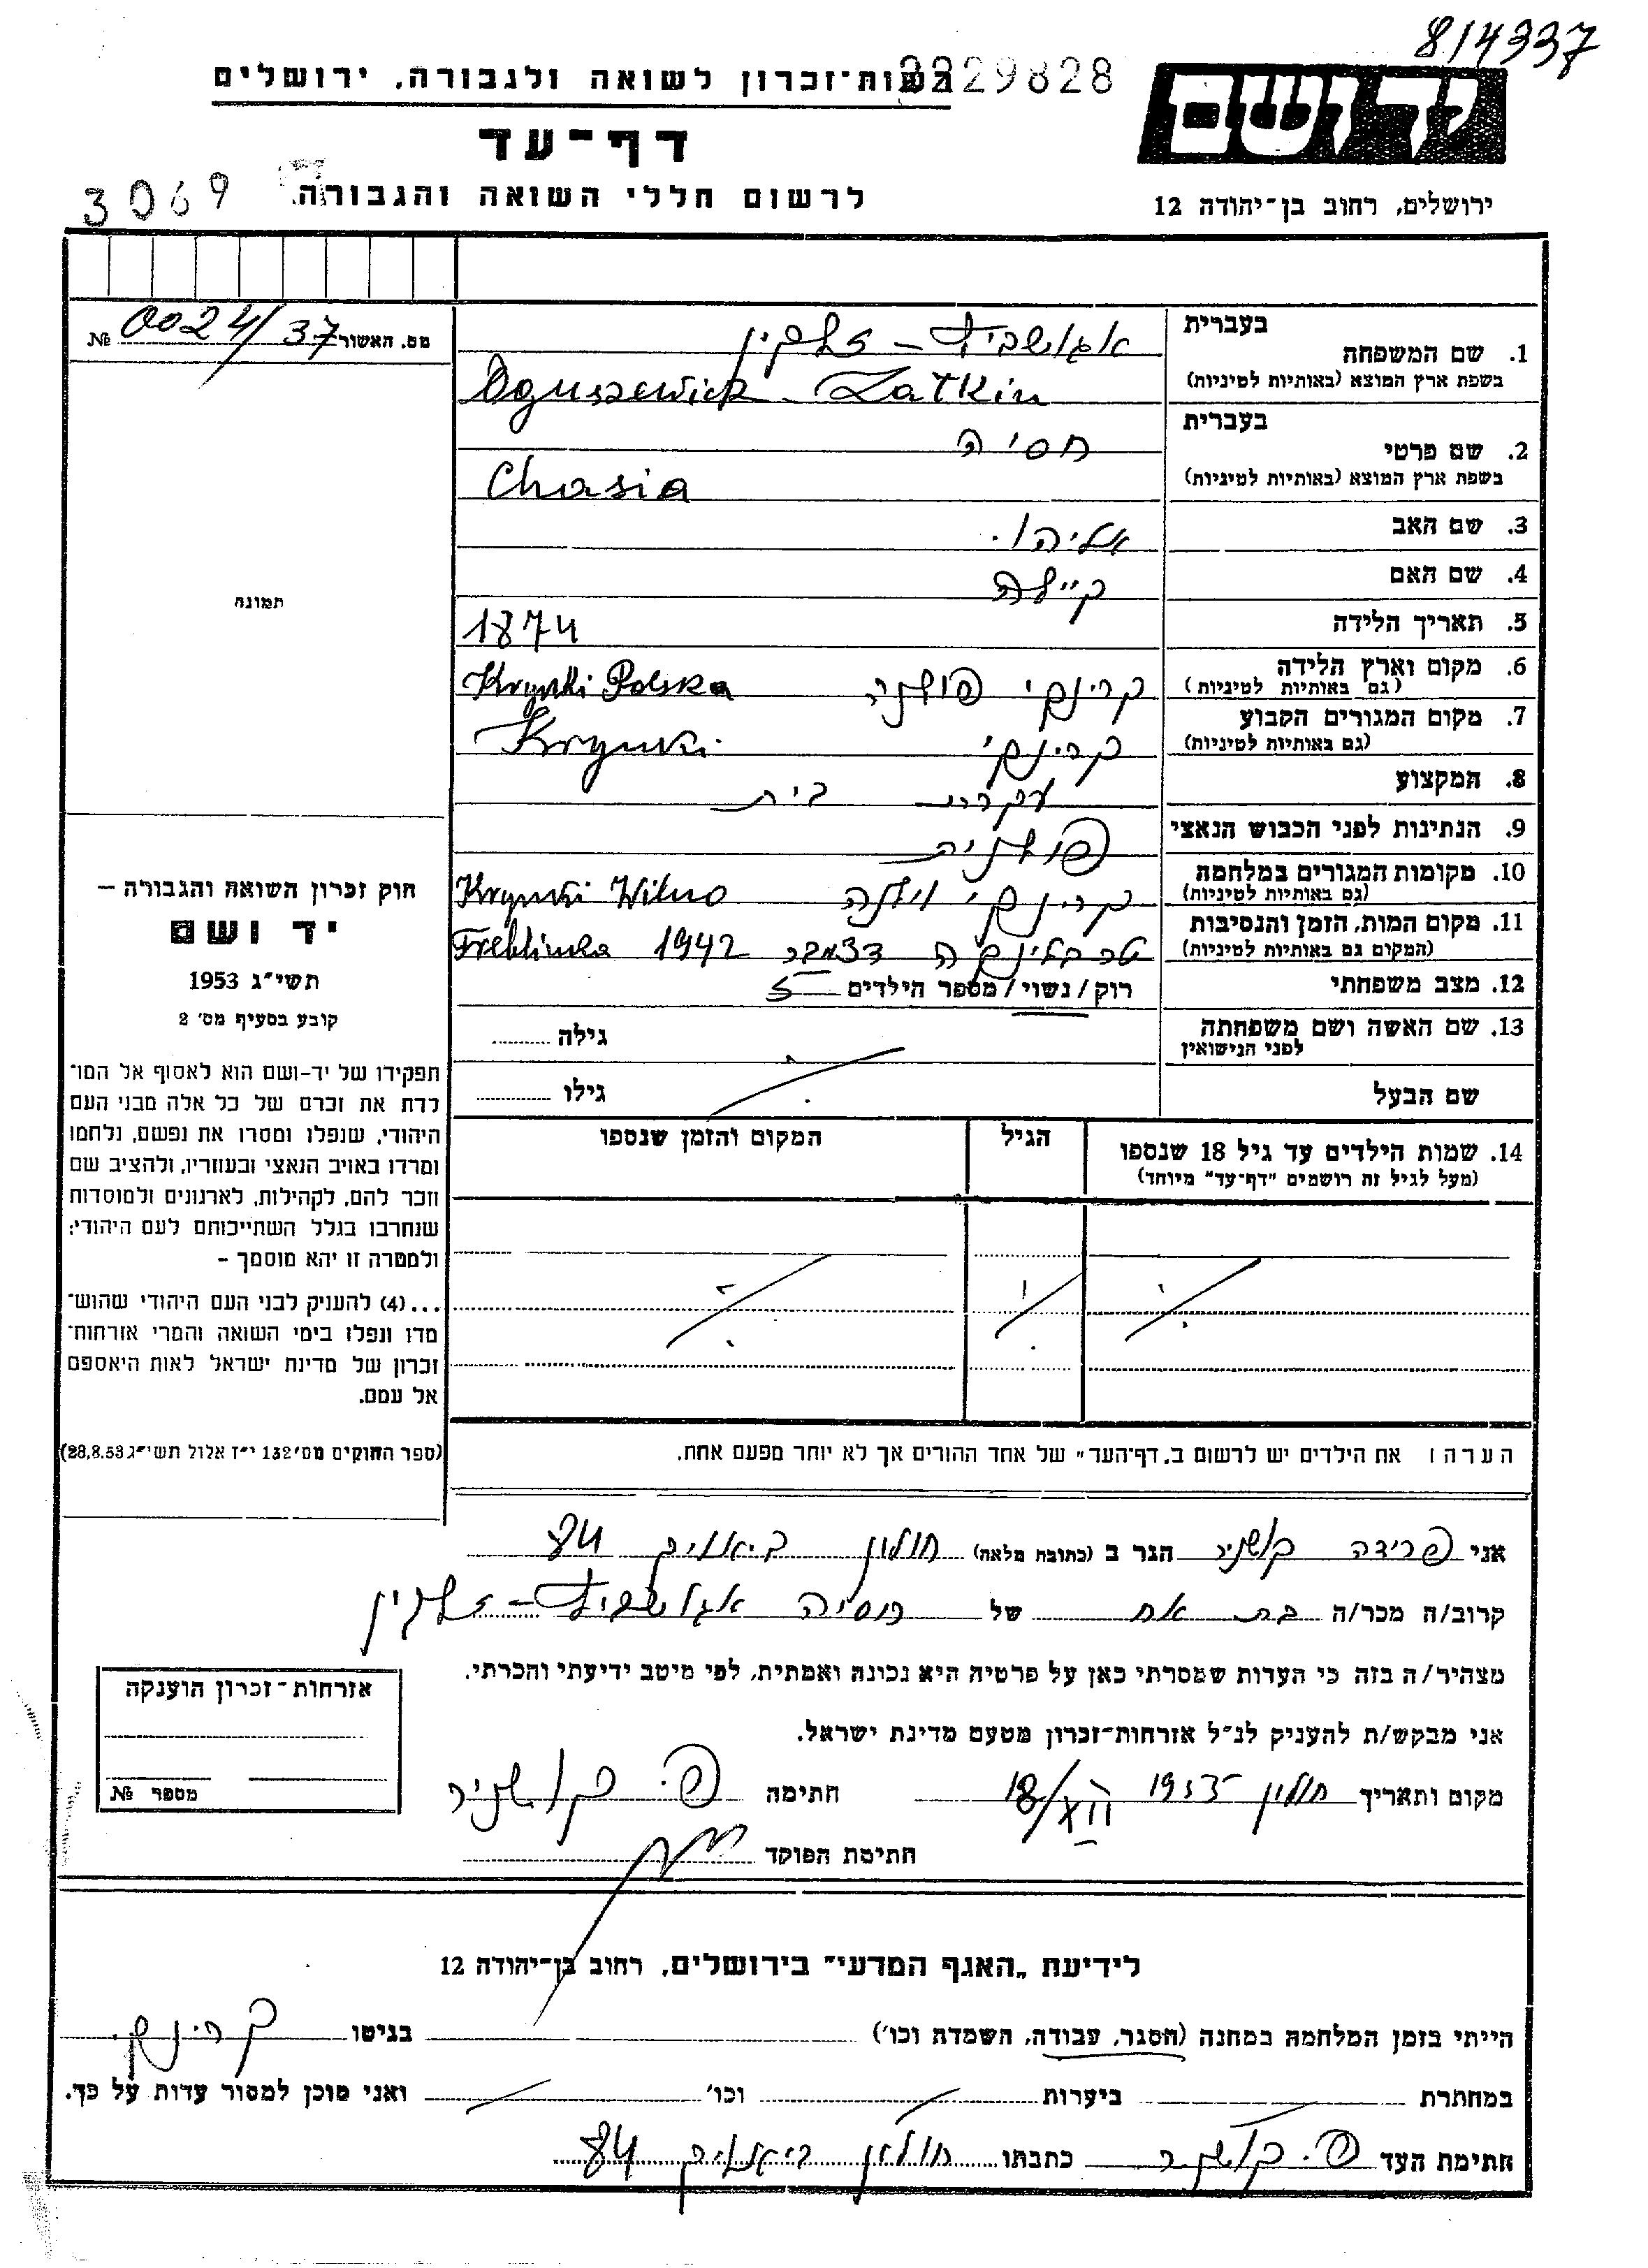 8/4337
2229828
רשות־זכרון לשואה ולגבורה, ירושלים
יד ושם
דף־עד
3069
לרשום חללי השואה והגבורה
ירושלים, רחוב בן־יהודה 12
מס. האשור 0024/37 №
תמונה
חוק זכרון השואה והגבורה –
יד ושם
תשי״ג 1953
קובע בסעיף מס׳ 2
תפקידו של יד-ושם הוא לאסוף אל המו־
לדת את זכרם של כל אלה מבני העם
היהודי, שנפלו ומסרו את נפשם, נלחמו
ומרדו באויב הנאצי ובעוזריו, ולהציב שם
וזכר להם, לקהילות, לארגונים ולמוסדות
שנחרבו בגלל השתייכותם לעם היהודי;
ולמטרה זו יהא מוסמך –
...(4) להעניק לבני העם היהודי שהוש־
מדו ונפלו בימי השואה והמרי אזרחות־
זכרון של מדינת ישראל לאות היאספם
אל עמם.
(ספר החוקים מס׳ 132 י״ז אלול תשי״ג 28.8.53)
בעברית
1. שם המשפחה אגושביץ – זלקין
בשפת ארץ המוצא (באותיות לטיניות) Oguszewick - Zatkin
בעברית
2. שם פרטי חסיה
בשפת ארץ המוצא (באותיות לטיניות) Chasia
3. שם האב אליהו.
4. שם האם קיילה
5. תאריך הלידה 1874
6. מקום וארץ הלידה קרינקי פולניה Krynki Polska
(גם באותיות לטיניות)
7. מקום המגורים הקבוע קרינקי Krynki
(גם באותיות לטיניות)
8. המקצוע עקרת בית
9. הנתינות לפני הכבוש הנאצי פולנית
10. מקומות המגורים במלחמה קרינקי וילנה Krynki Wilno
(גם באותיות לטיניות)
11. מקום המות, הזמן והנסיבות טרבלינקה דצמבר 1942 Treblinka
(המקום גם באותיות לטיניות)
12. מצב משפחתי רוק/נשוי/מספר הילדים 5
13. שם האשה ושם משפחתה גילה
לפני הנישואין
שם הבעל גילו
14. שמות הילדים עד גיל 18 שנספו הגיל המקום והזמן שנספו
(מעל לגיל זה רושמים "דף־עד" מיוחד)
הערה ו את הילדים יש לרשום ב„דף־העד" של אחד ההורים אך לא יותר מפעם אחת.
אני פרידה קושניר הגר ב (כתובת מלאה) חולון ביאליק 84
קרוב/ה מכר/ה בת אח של חסיה אגושביץ – זלקין
מצהיר/ה בזה כי העדות שמסרתי כאן על פרטיה היא נכונה ואמתית, לפי מיטב ידיעתי והכרתי.
אני מבקש/ת להעניק לנ״ל אזרחות־זכרון מטעם מדינת ישראל.
מקום ותאריך חולון 1955 18/XII חתימה פ. קושניר
חתימת הפוקד
אזרחות־זכרון הוענקה
מספר №
לידיעת „האגף המדעי" בירושלים, רחוב בן־יהודה 12
הייתי בזמן המלחמה במחנה (הסגר, עבודה, השמדה וכו׳) בגיטו קרינקי
במחתרת ביערות וכו׳ ואני מוכן למסור עדות על כך.
חתימת העד פ. קושניר כתבתו חולון ביאליק 84